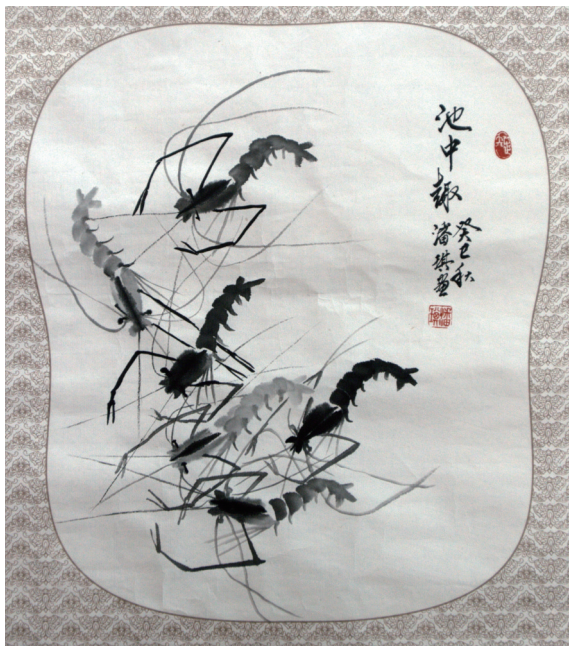 池中趣
癸巳秋
潘琪画